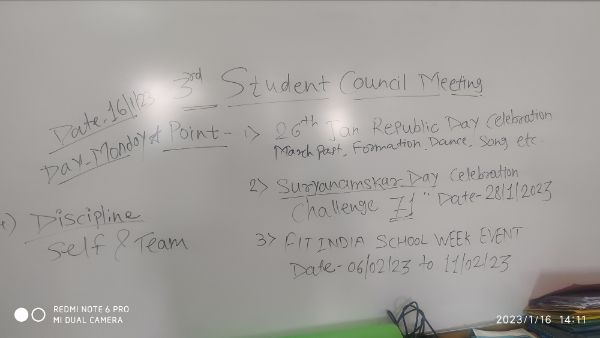 3rd Student Council Meeting
Date-16/1/23
Day-Monday
* Point - 1> 26th Jan Republic Day Celebration
March Past, Formation, Dance, Song etc.
2> Suryanamskar Day Celebration
Challenge 71" Date-28/1/2023
3> FIT INDIA SCHOOL WEEK EVENT
Date-06/02/23 to 11/02/23
4) Discipline
Self & Team
REDMI NOTE 6 PRO
MI DUAL CAMERA
2023/1/16 14:11